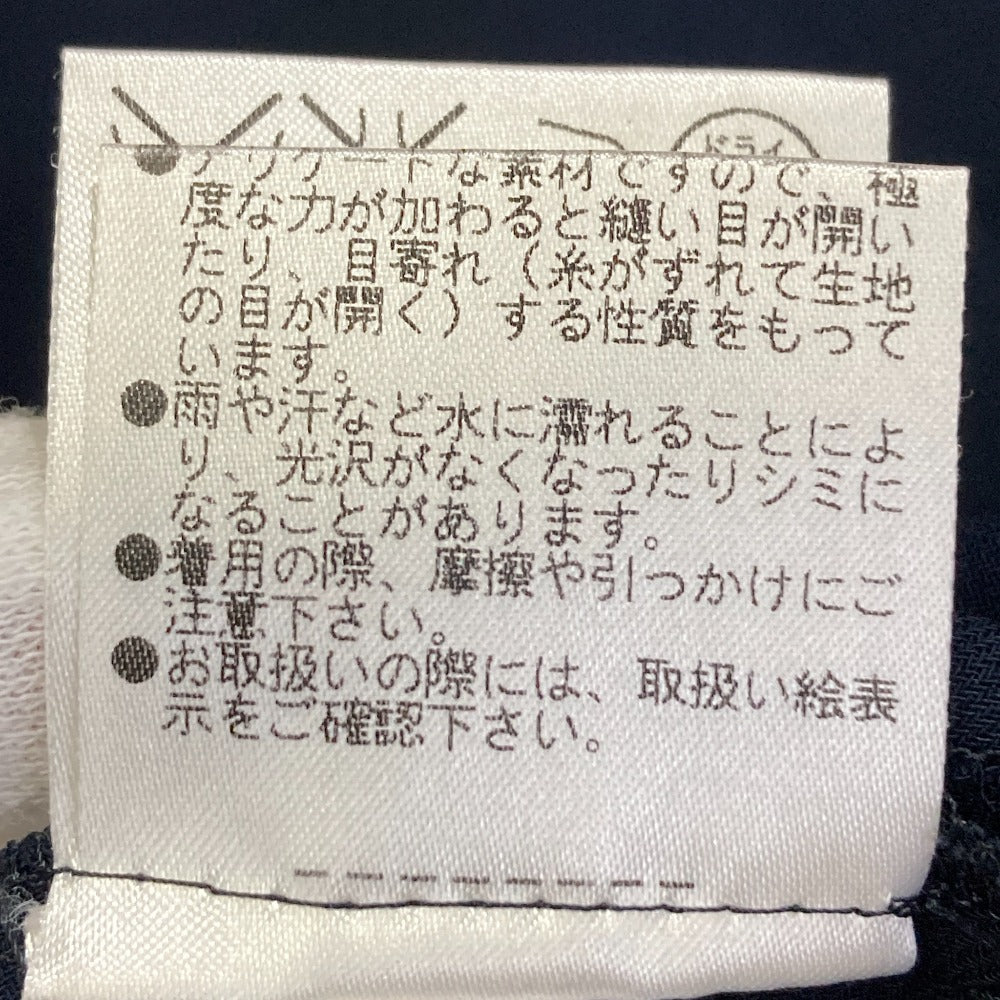 ドライ
●デリケートな素材ですので、極
度な力が加わると縫い目が開い
たり、目寄れ（糸がずれて生地
の目が開く）する性質をもって
います。
●雨や汗など水に濡れることによ
り、光沢がなくなったりシミに
なることがあります。
●着用の際、摩擦や引っかけにご
注意下さい。
●お取扱いの際には、取扱い絵表
示をご確認下さい。